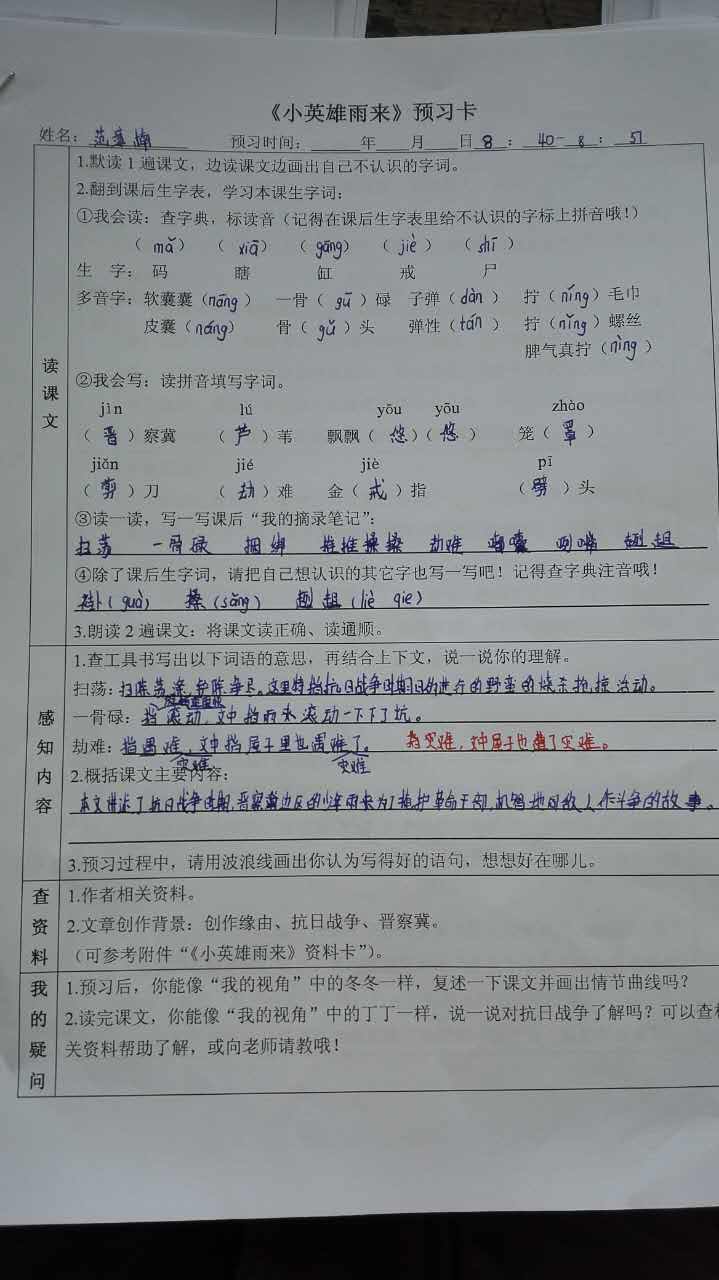 《小英雄雨来》预习卡
姓名： 预习时间：____年____月____日 8：40-8：51
1.默读1遍课文，边读课文边画出自己不认识的字词。
2.翻到课后生字表，学习本课生字词：
①我会读：查字典，标读音（记得在课后生字表里给不认识的字标上拼音哦！）
（mǎ）（xiā）（gāng）（jiè）（shī）
生 字：码 瞎 缸 戒 尸
多音字：软囊囊（nāng）一骨（gū）碌 子弹（dàn）拧（níng）毛巾
皮囊（náng） 骨（gǔ）头 弹性（tán）拧（nǐng）螺丝
脾气真拧（nìng）
读课文
②我会写：读拼音填写字词。
jìn lú yōu yōu zhào
（晋）察冀 （芦）苇 飘飘（悠）（悠） 笼（罩）
jiǎn jié jiè pī
（剪）刀 （劫）难 金（戒）指 （劈）头
③读一读，写一写课后“我的摘录笔记”：
扫荡 一骨碌 捆绑 推推搡搡 劫难 趔趄
④除了课后生字词，请把自己想认识的其它字也写一写吧！记得查字典注音哦！
褂（guà） 搡（sǎng） 趔趄（liè qie）
3.朗读2遍课文：将课文读正确、读通顺。
感知内容
1.查工具书写出以下词语的意思，再结合上下文，说一说你的理解。
扫荡：扫除荡涤,铲除净尽。这里特指抗日战争时期日伪进行的野蛮的烧杀抢掠活动。
一骨碌：指滚动,文中指雨来滚动一下下了炕。
劫难：指遇难,文中指屋子里也遇难了。 指灾难,文中屋子也遭了灾难。
灾难 灾难
2.概括课文主要内容：
本文讲述了抗日战争时期,晋察冀边区的少年雨来为了掩护革命干部,机智地同敌人作斗争的故事。
3.预习过程中，请用波浪线画出你认为写得好的语句，想想好在哪儿。
查资料
1.作者相关资料。
2.文章创作背景：创作缘由、抗日战争、晋察冀。
（可参考附件“《小英雄雨来》资料卡”）。
我的疑问
1.预习后，你能像“我的视角”中的冬冬一样，复述一下课文并画出情节曲线吗？
2.读完课文，你能像“我的视角”中的丁丁一样，说一说对抗日战争了解吗？可以查相
关资料帮助了解，或向老师请教哦！